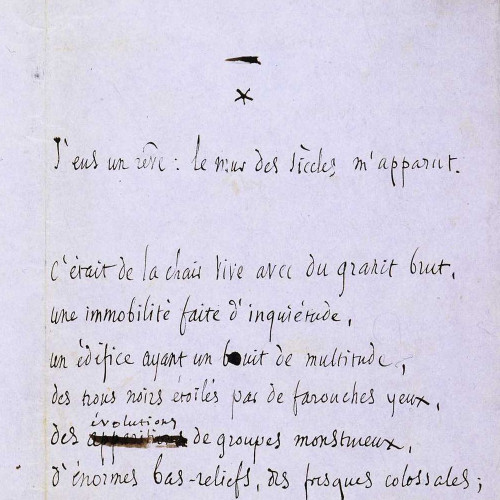 J'eus un rêve : le mur des siècles m'apparut.
C'était de la chair vive avec du granit brut,
une immobilité faite d'inquiétude,
un édifice ayant un bruit de multitude,
des trous noirs étoilés par de farouches yeux,
évolutions
des de groupes monstrueux,
d'énormes bas-reliefs, des fresques colossales ;